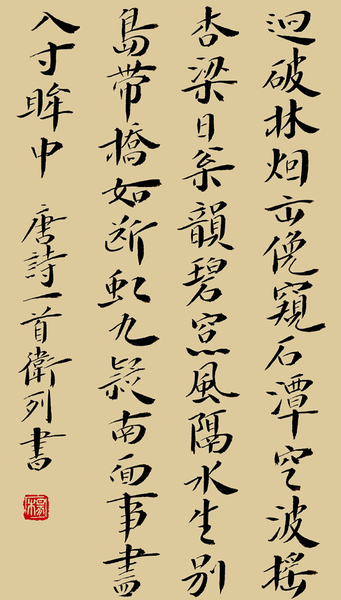 迥破林烟出俛窺石潭空波摇
杏梁日松韻碧窓風隔水生别
島帶橋如断虹九疑南面事盡
入寸眸中 唐詩一首衛列書